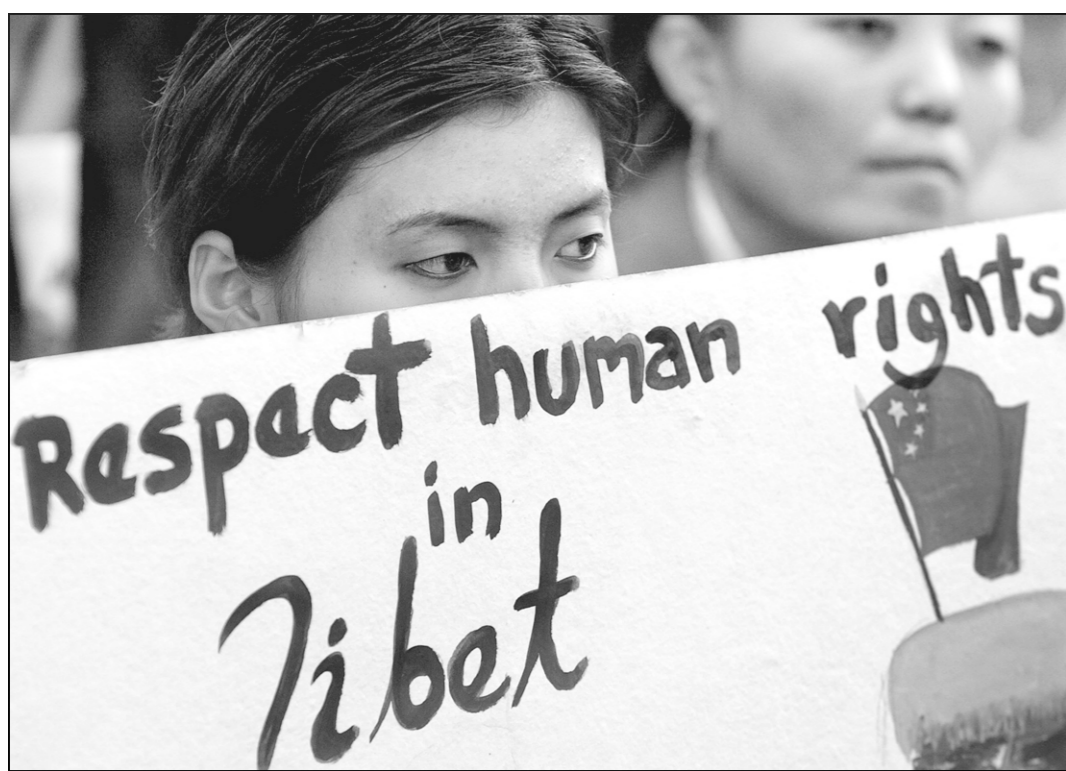 Respect human rights
in
Tibet